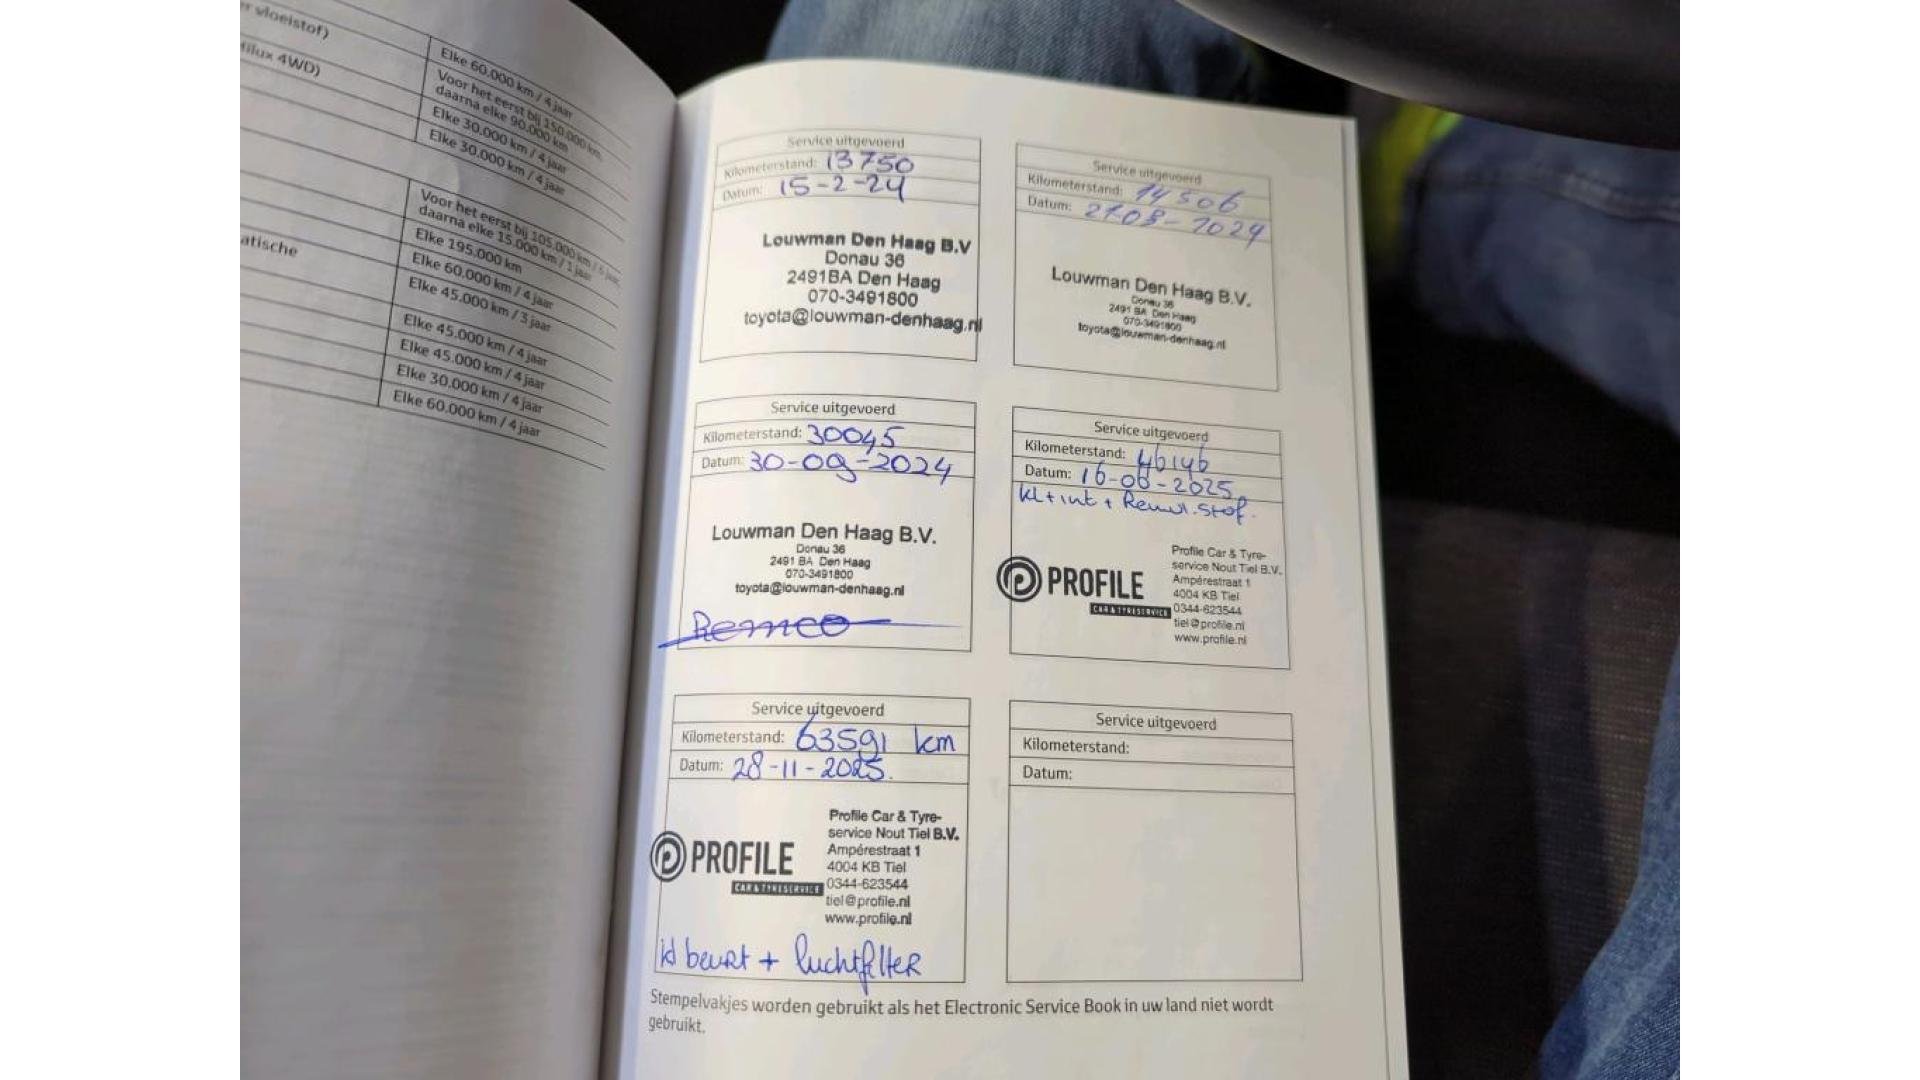 r vloeistof)
Hilux 4WD)
Elke 60.000 km / 4 jaar
Voor het eerst bij 150.000 km,
daarna elke 90.000 km
Elke 30.000 km / 4 jaar
Elke 30.000 km / 4 jaar
Voor het eerst bij 105.000 km / 5 jaar,
daarna elke 15.000 km / 1 jaar
atische
Elke 195.000 km
Elke 60.000 km / 4 jaar
Elke 45.000 km / 3 jaar
Elke 45.000 km / 4 jaar
Elke 45.000 km / 4 jaar
Elke 30.000 km / 4 jaar
Elke 60.000 km / 4 jaar
Service uitgevoerd
Kilometerstand: 13750
Datum: 15-2-24
Louwman Den Haag B.V
Donau 36
2491BA Den Haag
070-3491800
toyota@louwman-denhaag.nl
Service uitgevoerd
Kilometerstand: 14506
Datum: 27-03-2024
Louwman Den Haag B.V.
Donau 36
2491 BA Den Haag
070-3491800
toyota@louwman-denhaag.nl
Service uitgevoerd
Kilometerstand: 30045
Datum: 30-09-2024
Louwman Den Haag B.V.
Donau 36
2491 BA Den Haag
070-3491800
toyota@louwman-denhaag.nl
Remco
Service uitgevoerd
Kilometerstand: 46146
Datum: 16-06-2025
kl + int + Remvl.stof.
PROFILE
CAR & TYRESERVICE
Profile Car & Tyre-
service Nout Tiel B.V.
Ampérestraat 1
4004 KB Tiel
0344-623544
tiel@profile.nl
www.profile.nl
Service uitgevoerd
Kilometerstand: 63591 km
Datum: 28-11-2025.
PROFILE
CAR & TYRESERVICE
Profile Car & Tyre-
service Nout Tiel B.V.
Ampérestraat 1
4004 KB Tiel
0344-623544
tiel@profile.nl
www.profile.nl
kl beurt + luchtfilter
Service uitgevoerd
Kilometerstand:
Datum:
Stempelvakjes worden gebruikt als het Electronic Service Book in uw land niet wordt
gebruikt.